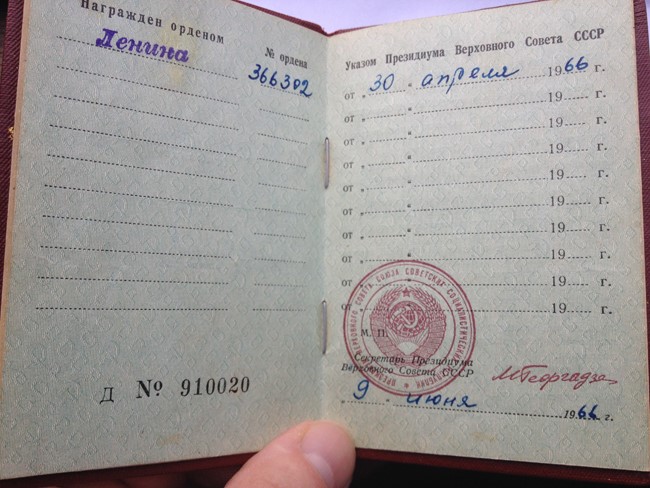 Награжден орденом
№ ордена
Ленина
366302
Д № 910020
Указом Президиума Верховного Совета СССР
от „ 30 “ апреля 1966 г.
от „ “ 19 г.
от „ “ 19 г.
от „ “ 19 г.
от „ “ 19 г.
от „ “ 19 г.
от „ “ 19 г.
от „ “ 19 г.
от „ “ 19 г.
М. П.
Секретарь Президиума
Верховного Совета СССР
МГеоргадзе
„ 9 “ июня 1966 г.